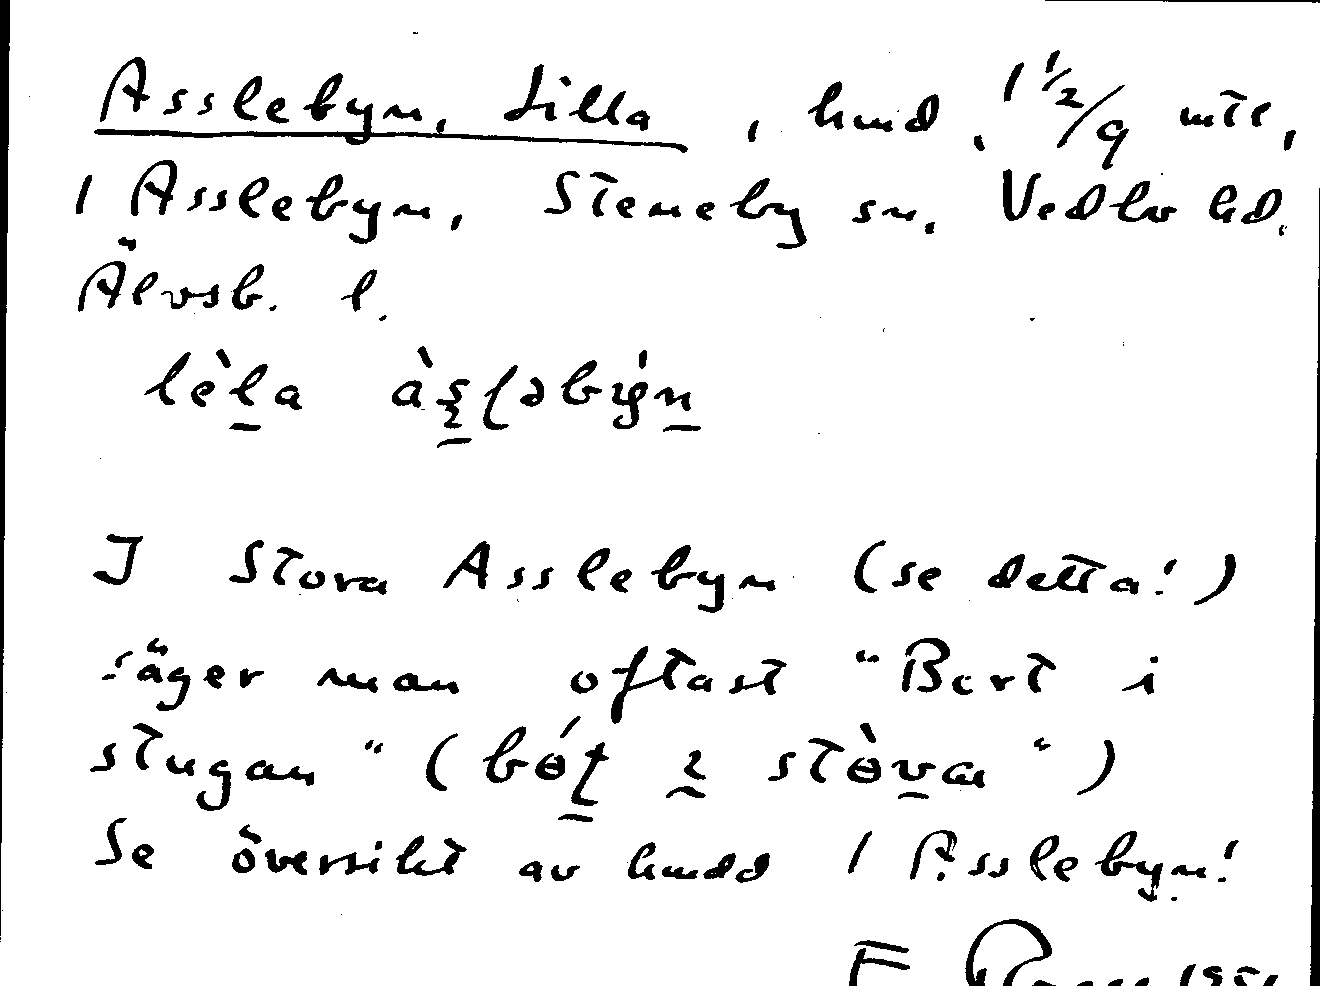 Asslebyn, Lilla, hmd, 1 1/2/9 mtl,
1 Asslebyn, Steneby sn. Vedbo hd.
Älvsb. l.
lèla
I Stora Asslebyn (se detta!)
säger man oftast "Bort i
stugan" (
Se översikt av hmdd 1 Asslebyn!